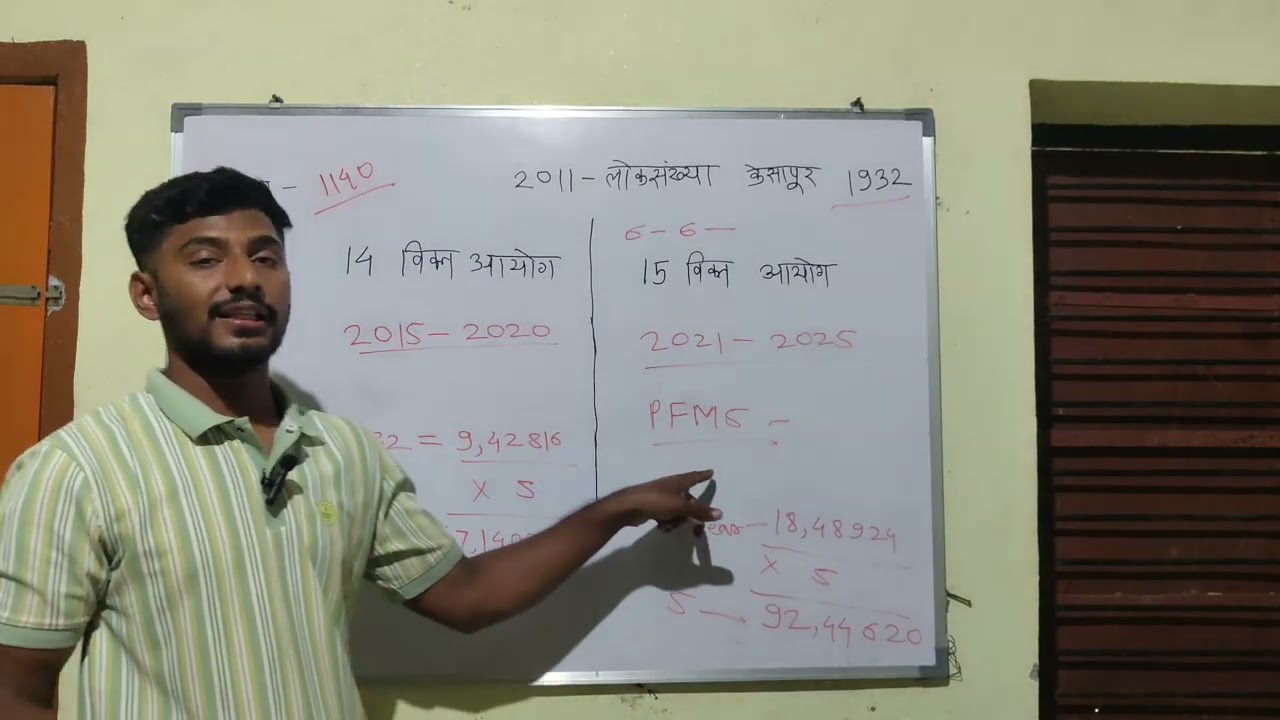 - 1140
2011 - लोकसंख्या केसापूर 1932
14 वित्त आयोग
2015 - 2020
32 = 9,42816
X 5
7,140
6 - 6 -
15 वित्त आयोग
2021 - 2025
PFMS -
ear - 18,48924
X 5
5 - 92,44620